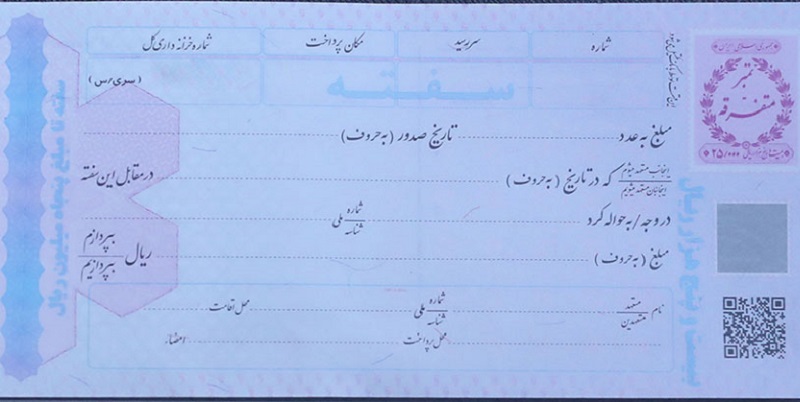 شماره
سررسید
مکان پرداخت
شماره خزانه داری کل
سفته
(سری/س)
مبلغ به عدد تاریخ صدور (به حروف)
اینجانب متعهد میشوم
اینجانبان متعهد میشویم
که در تاریخ (به حروف) در مقابل این سفته
در وجه / به حواله کرد شماره ملی
شناسه
مبلغ (به حروف) ریال بپردازم
بپردازیم
نام متعهد شماره ملی محل اقامت
متعهدین شناسه
محل پرداخت امضاء
جمهوری اسلامی ایران
تمبر
متفرقه
۲۵/۰۰۰
بیست و پنج هزار ریال
سفته تا مبلغ پنجاه میلیون ریال